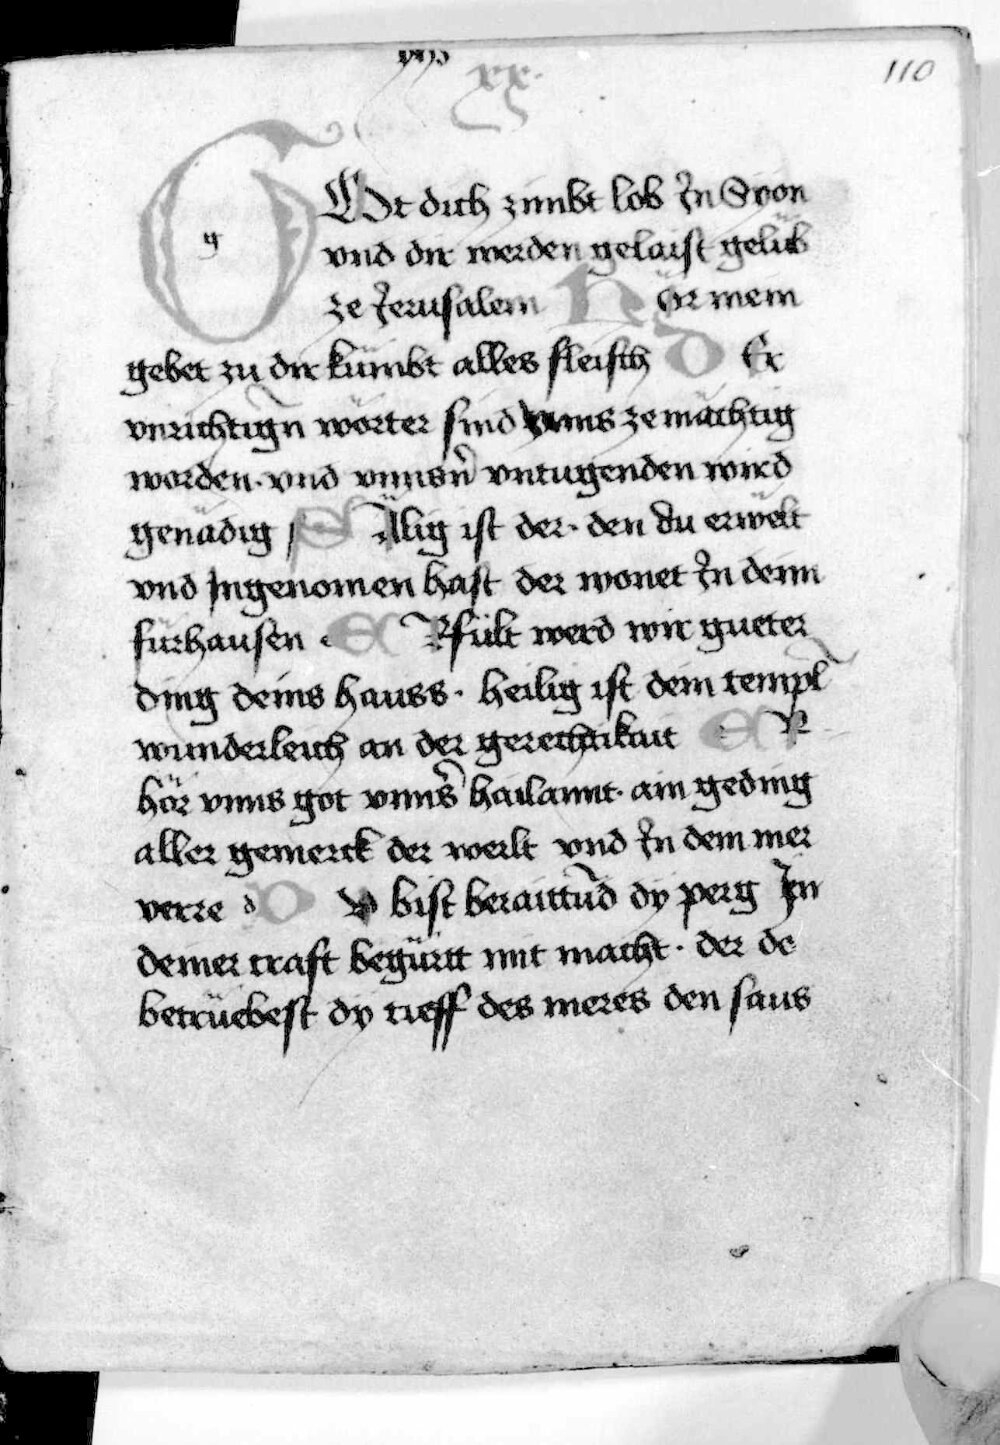 xx.
110
GOt dich zimbt lob Jn Syon
vnd dir werden gelaist gelüb
ze Jerusalem Hör mein
gebet zu dir kümbt alles fleisch DEr
vnrichtign̄ wörter sind vnns ze mächtig
worden · vnd vnnsn̄ vntugenden wird
genädig SÄlig ist der · den du erwelt
vnd Jngenomen hast der wonet Jn deinn
fürhausen · ERfült werd wir gueter
ding deins hauss · heilig ist dein templ
wunderleich an der gerechtikait ER
hör vnns got vnns̄ hailannt · ain geding
aller gemerck der werlt vnd Jn dem mer
verre DV bist beraittūd dy perg Jn
deiner craft begürtt mit macht · der do
betrüebest dy tieff des meres den saus